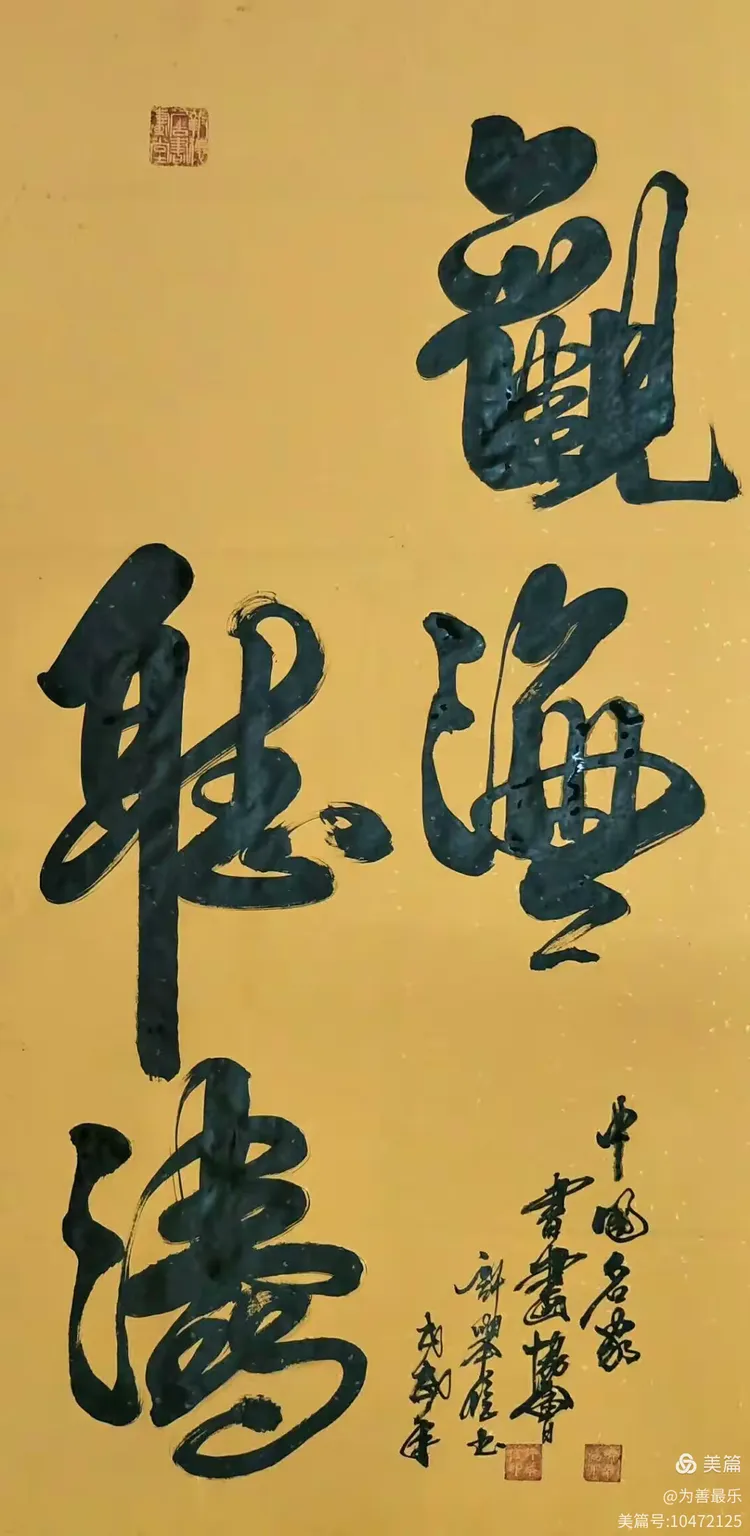 觀海
聽濤
中國名家
書畫協會
戊戌年
美篇
@为善最乐
美篇号:10472125